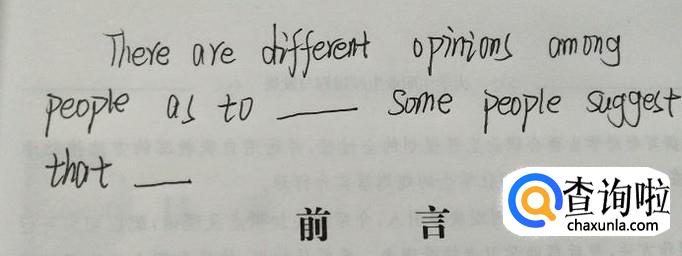 There are different opinions among
people as to ___ Some people suggest
that ___
前 言
查询啦
chaxunla.com